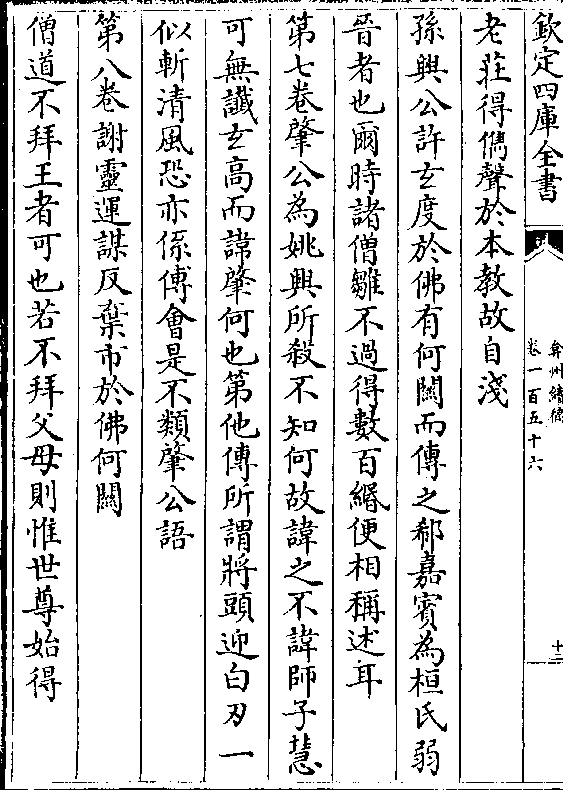 欽定四庫全書
弇州續稿
卷一百五十六
十三
老莊得儁聲於本教故自淺
孫興公許玄度於佛有何關而傳之郗嘉賓為桓氏弱
晉者也爾時諸僧雛不過得數百緡便相稱述耳
第七卷肇公為姚興所殺不知何故諱之不諱師子慧
可無讖玄高而諱肇何也第他傳所謂將頭迎白刃一
似斬清風恐亦係傅會是不類肇公語
第八卷謝靈運謀反棄市於佛何關
僧道不拜王者可也若不拜父母則惟世尊始得